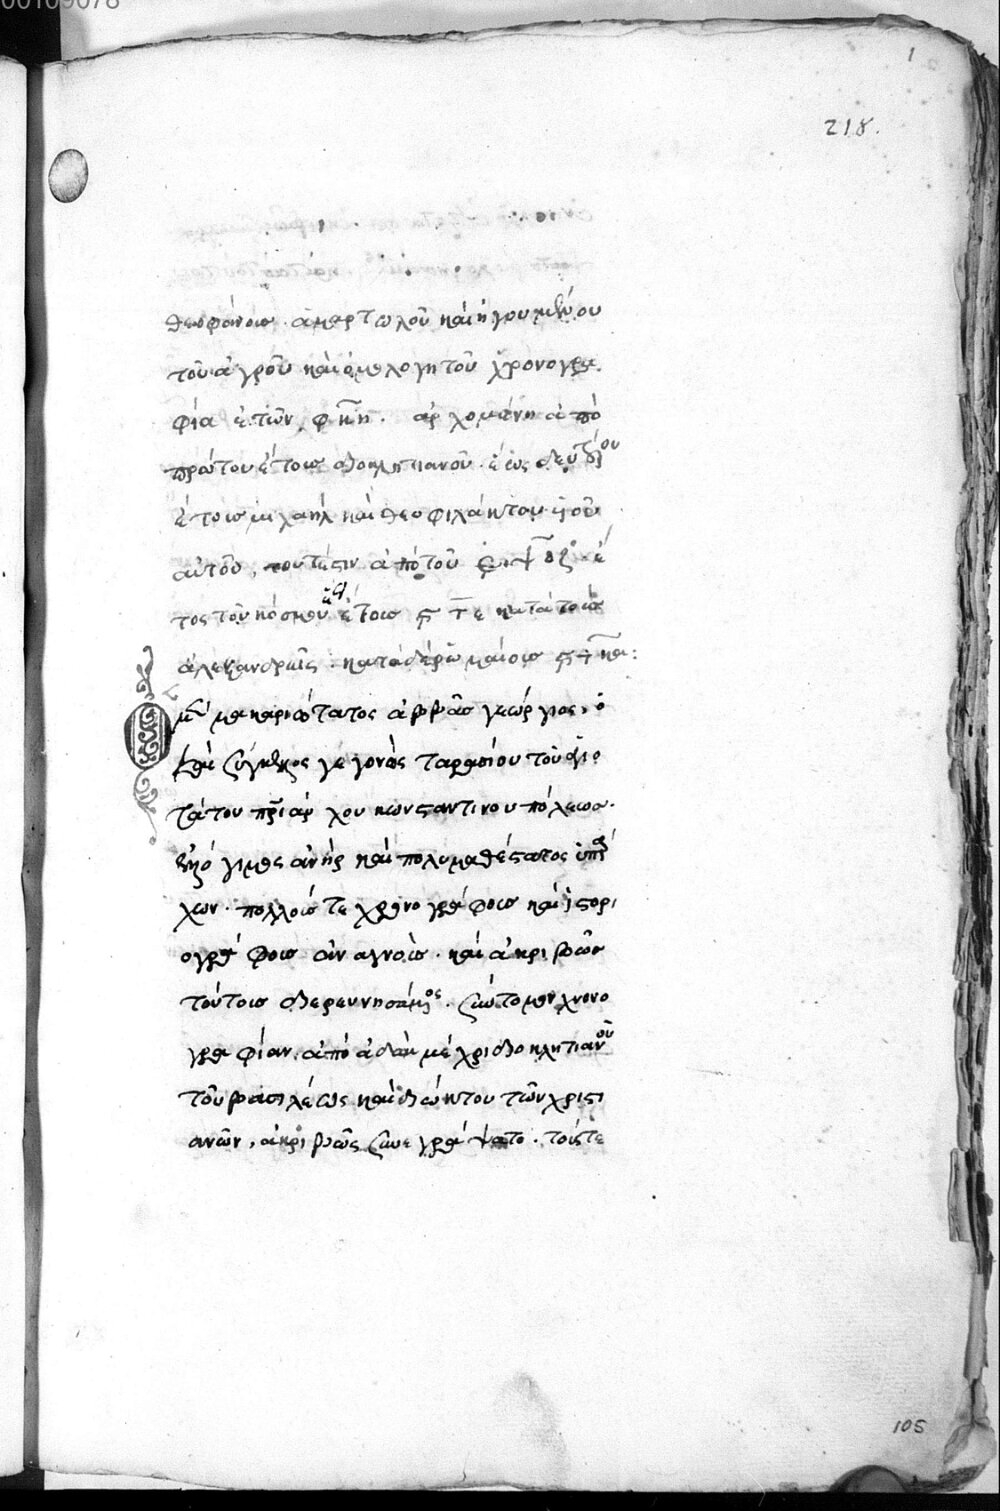 00109078
1
218.
θεοφάνους ἁμαρτωλοῦ καὶ ἡγουμένου
τοῦ ἀγροῦ καὶ ὁμολογητοῦ χρονογρα
φία ἐτῶν φκη. ἀρχομένη ἀπὸ
πρώτου ἔτους διοκλητιανοῦ ἕως δευτέρου
ἔτους μιχαὴλ καὶ θεοφιλάκτου υἱοῦ
αὐτοῦ, τουτέστιν ἀπὸ τοῦ ἔ
τος τοῦ κόσμου ἔτους ϛτε κατὰ τοὺς
ἀλεξανδρεῖς. κατὰ δὲ ῥωμαίους ϛτκα:
Ὁ μὲν μακαριώτατος ἀββᾶς γεώργιος, ὁ
καὶ σύγκελλος γεγονὼς ταρασίου τοῦ ἁγιο
τάτου πριάρχου κωνσταντινουπόλεως.
ἐλλόγιμος ἀνὴρ καὶ πολυμαθέστατος ὑπάρ
χων. πολλούς τε χρονογράφους καὶ ἱστορι
ογράφους ἀναγνοὺς. καὶ ἀκριβῶς
τούτους διερευνησάμενος. σύντομον χρονο
γραφίαν, ἀπὸ ἀδὰμ μέχρι διοκλητιανοῦ
τοῦ βασιλέως καὶ διώκτου τῶν χριστι
ανῶν, ἀκριβῶς συνεγράψατο. τούς τε
105